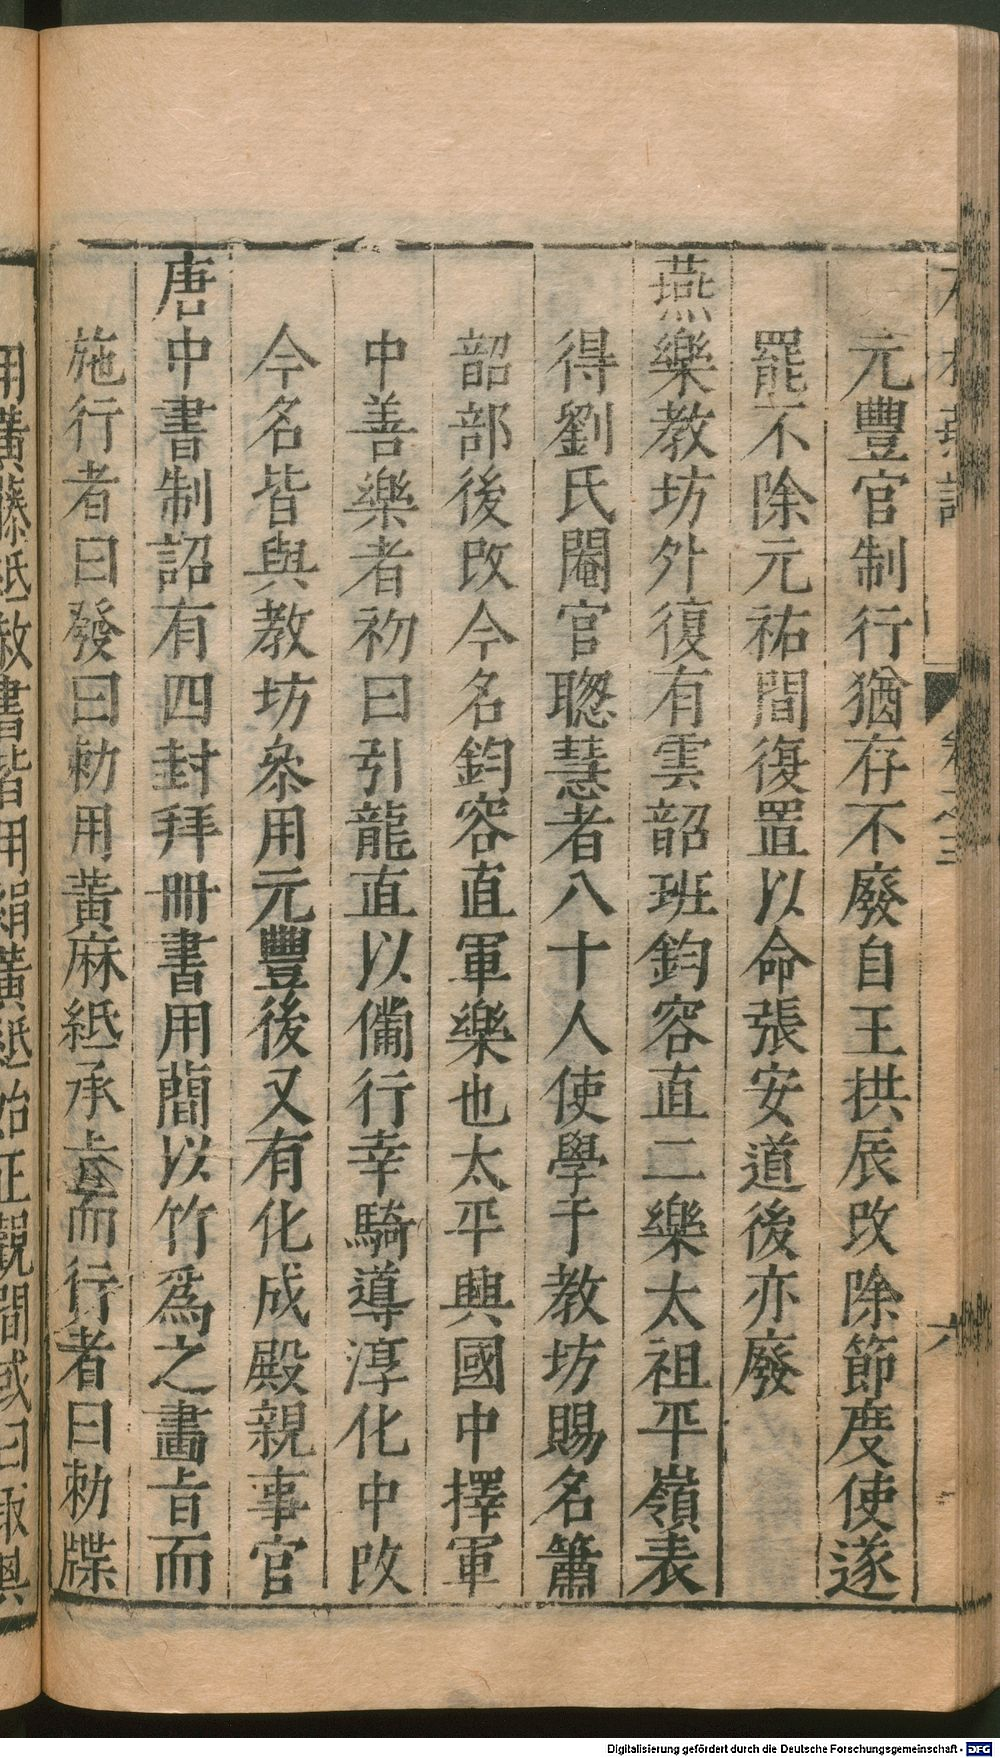 元豐官制行猶存不廢自王拱辰改除節度使遂
罷不除元祐間復置以命張安道後亦廢
燕樂教坊外復有雲韶班鈞容直二樂太祖平嶺表
得劉氏閹官聦慧者八十人使學于教坊賜名簫
韶部後改今名鈞容直軍樂也太平興國中擇軍
中善樂者初曰引龍直以備行幸騎導淳化中改
今名皆與教坊叅用元豐後又有化成殿親事官
唐中書制詔有四封拜冊書用簡以竹爲之畫旨而
施行者曰發曰勑用黃麻紙承旨而行者曰勑牒
用黃藤紙赦書皆用絹黃紙始正觀間或曰取其
卷之三
六
Digitalisierung gefördert durch die Deutsche Forschungsgemeinschaft - DFG